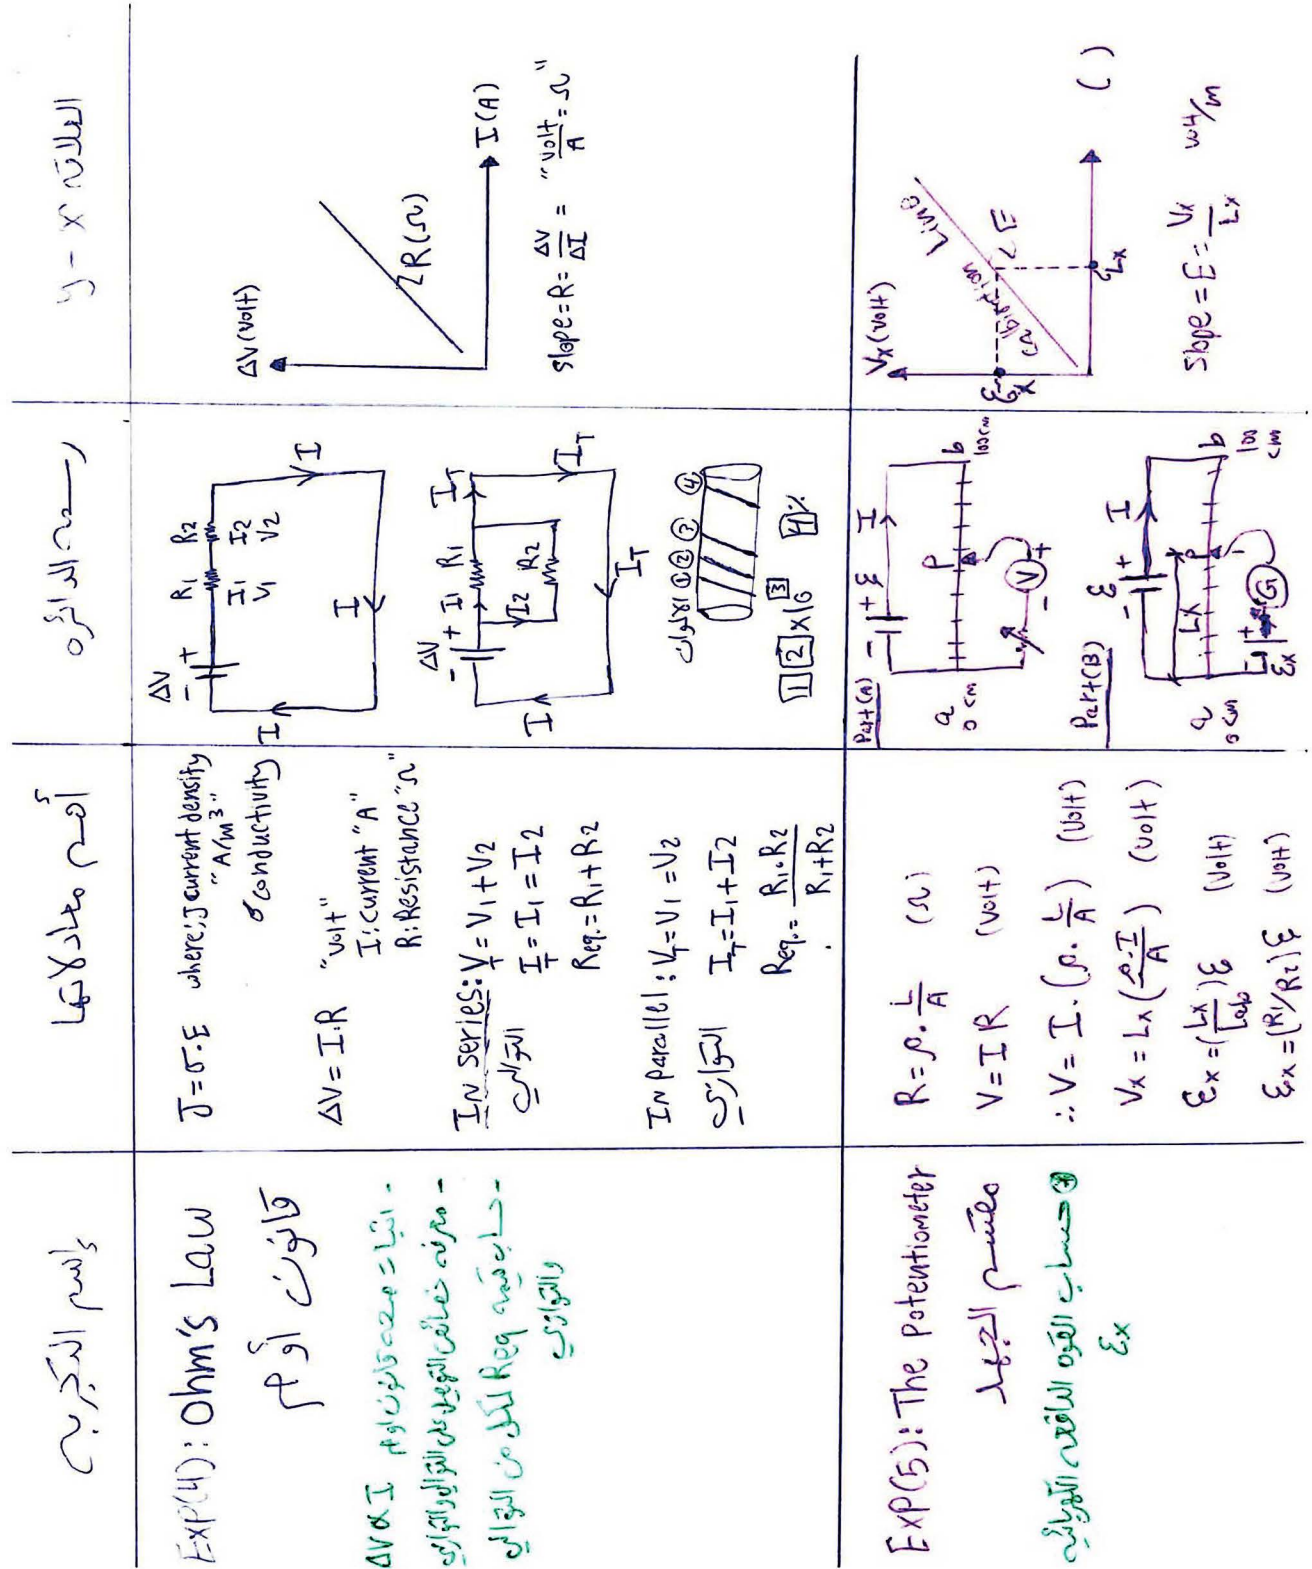 إسم التجربه
أهم معادلاتها
رسمة الدائره
العلاقة y - x
Exp(4): Ohm's Law
قانون أوم
ΔV α I
- اثبات صحه قانون اوم
- معرفه خصائص التوصيل على التوالي والتوازي
- حساب قيمه Req لكل من التوالي
والتوازي
J=σ.E where; J current density
"A/m³"
σ conductivity
ΔV = I.R "Volt"
I: current "A"
R: Resistance "Ω"
In series: V_T = V1 + V2
التوالي
I_T = I1 = I2
Req. = R1 + R2
In parallel: V_T = V1 = V2
التوازي
I_T = I1 + I2
Req. = R1.R2 / R1+R2
ΔV
- +
R1 R2
I1 I2
V1 V2
I
I
I
ΔV
- +
I1 R1
I2 R2
I_T
I_T
I_T
I
الالوان ① ② ③ ④
1 2 x 10 3 4 %
ΔV (volt)
R(Ω)
I (A)
Slope = R = ΔV/ΔI = "Volt/A = Ω"
Exp(5): The Potentiometer
مقسم الجهد
④ حساب القوه الدافعه الكهربائيه
Ɛx
R = ρ. L/A (Ω)
V = I R (Volt)
∴ V = I. (ρ. L/A) (Volt)
Vx = Lx (ρ.I/A) (Volt)
Ɛx = (Lx/Lab) Ɛ (Volt)
Ɛx = (R1/R2) Ɛ (Volt)
Part(A)
- + Ɛ
I
a
0 cm
P
b
100 cm
- V +
Part(B)
Ɛ
- +
I
Lx
a
0 cm
P
b
100
cm
- +
G
Ɛx
Vx (volt)
Ɛx
calibration Line
E
Lx
( )
Slope = E = Vx/Lx volt/m